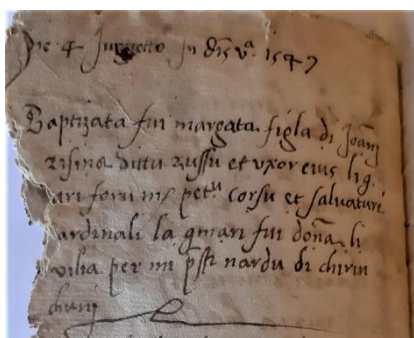 Die 4 Jugnetto jn dīs v.ª 1547
Baptizata fui margata figla di Joānj
risina dittu russu et vxor eius li q̄
ari foru ms petᵘ corsu et saluaturi
ardinali la q̄mari fui dōna li
uilia per mi p̄sti nardu di chirin
chunj